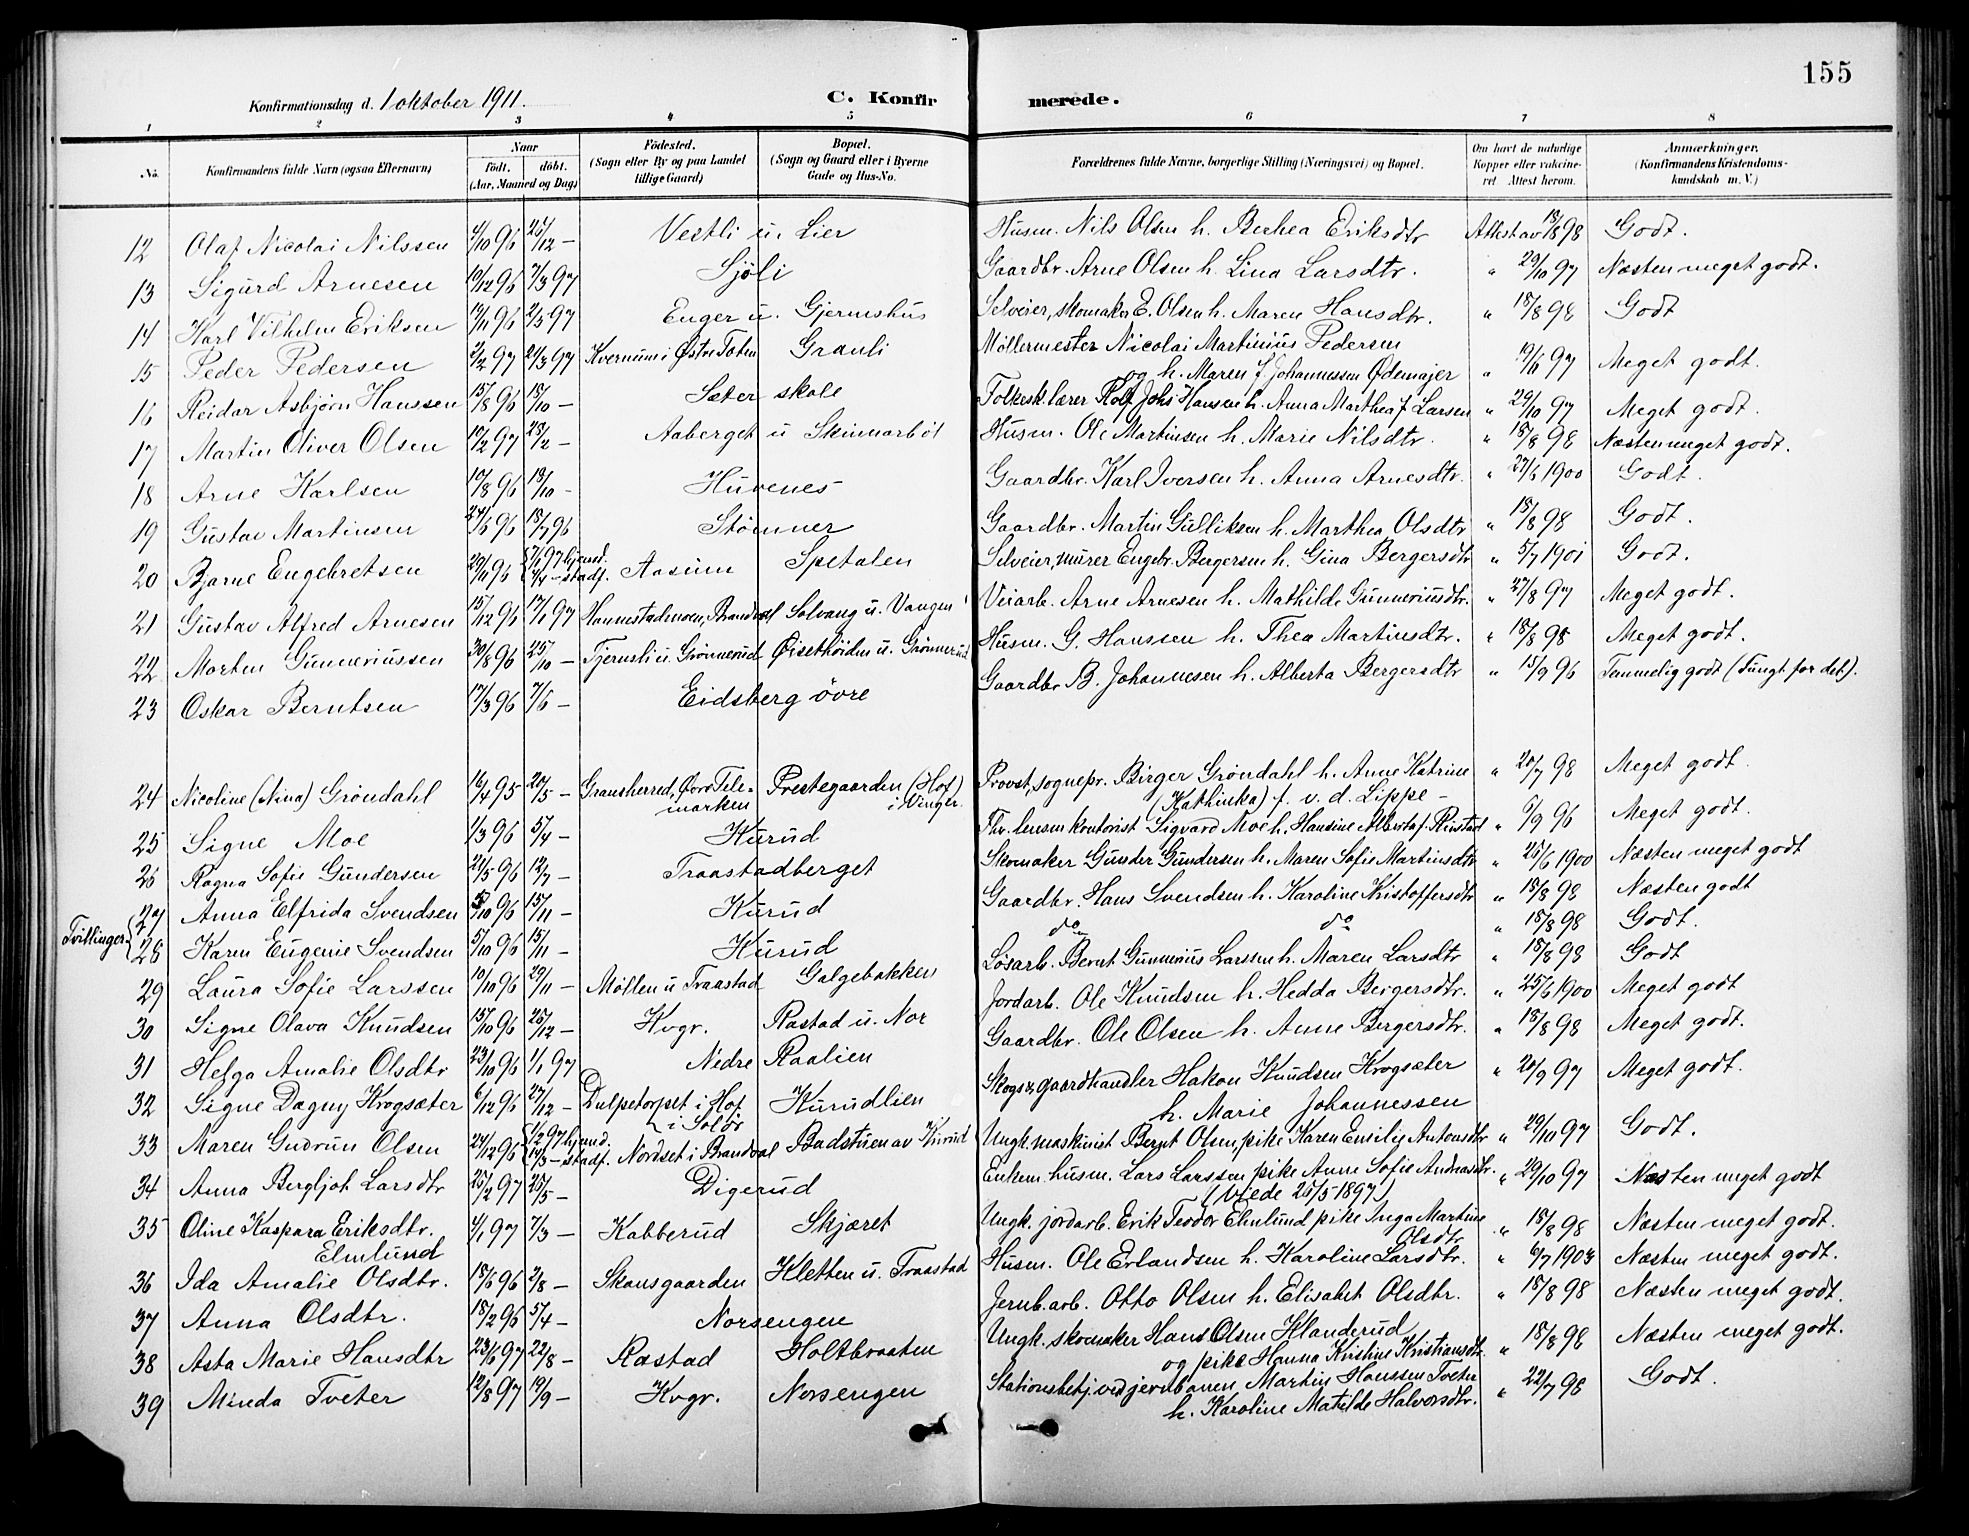 155
Konfirmationsdag d. 1 oktober 1911.
C. Konfirmerede.
1 2 3 4 5 6 7 8
No. Konfirmandens fulde Navn (ogsaa Efternavn) Naar født. døbt. (Aar, Maaned og Dag) Födested. (Sogn eller By og paa Landet tillige Gaard) Bopæl. (Sogn og Gaard eller i Byerne Gade og Hus-No. Forældrenes fulde Navne, borgerlige Stilling (Næringsvei) og Bopæl. Om havt de naturlige Kopper eller vakcineret Attest herom. Anmærkninger. (Konfirmandens Kristendomskundskab m. V.)
12 Olaf Nicolai Nilssen 4/10 96 26/12 – Vestli u. Lier Husm. Nils Olsen h. Berhea Eriksdtr Attest av 18/8 98 Godt.
13 Sigurd Arnesen 10/12 96 7/3 97 Sjöli Gaardbr. Arne Olsen h. Lina Larsdtr. " 29/10 97 Næsten meget godt.
14 Karl Vilhelm Eriksen 17/11 96 2/5 97 Enger u. Gjermshus Selveier, skomaker E. Olsen h. Maren Hansdtr. " 18/8 98 Godt
15 Peder Pedersen 2/2 97 21/3 97 Kvernum i Østre Toten Granli Möllermester Nicolai Martinius Pedersen
og h. Maren f. Johannessen Ødemajer " 19/6 97 Meget godt.
16 Reidar Asbjørn Hanssen 15/8 96 18/10 – Sæter skole Folkesk.lærer Rolf Johs Hansen h. Anna Marthea f. Larsen " 29/10 97 Meget godt.
17 Martin Oliver Olsen 17/2 97 28/2 – Aaberget u Skinnarböl Husm. Ole Martinsen h. Marie Nilsdtr. " 18/8 98 Næsten meget godt.
18 Arne Karlsen 10/8 96 18/10 – Huvenes Gaardbr. Karl Iversen h. Anna Arnesdtr. " 27/6 1900 Godt.
19 Gustav Martinsen 24/5 96 18/7 96 Stömner Gaardbr. Martin Gulliksen h. Marthea Olsdtr " 18/8 98 Godt.
20 Bjarne Engebretsen 29/11 96 7/1 97 hjemd. 4/4 – stadf. Aasum Spetalen Selveier, murer Engebr. Bergersen h. Gina Bergersdtr " 5/7 1901 Godt.
21 Gustav Alfred Arnesen 15/12 96 17/1 97 Hannestadmoen, Brandval Solvang u. Vangen Veiarb. Arne Arnesen h. Mathilde Gunneriusdtr. " 27/8 97 Meget godt.
22 Morten Gunneriussen 30/8 96 25/10 – Tjernsli u. Grönnerud Öisethöiden u. Grönnerud Husm. G. Hanssen h. Thea Martinsdtr. " 18/8 98 Meget godt.
23 Oskar Berntsen 17/3 96 7/6 – Eidsberg övre Gaardbr. B. Johannesen h. Alberta Bergersdtr " 15/9 96 Temmelig godt (Tungt for det).
24 Nicoline (Nina) Gröndahl 16/4 95 20/5 – Gransherred, Övre Telemarken Prestegaarden (Hof) i Vinger. Provst, sognepr. Birger Gröndahl h. Anne Katrine
(Kathinka) f. v. d. Lippe – " 20/7 98 Meget godt.
25 Signe Moe 1/3 96 5/4 – Kurud Fhv. lensm.kontorist Sigvard Moe h. Hansine Alberta f. Rustad " 6/9 96 Meget godt.
26 Ragna Sofie Gundersen 21/5 96 12/7 – Traastadberget Skomaker Gunder Gundersen h. Maren Sofie Martinsdtr " 25/6 1900 Næsten meget godt
Tvillinger
27 Anna Elfrida Svendsen 5/10 96 15/11 – Kurud Gaardbr. Hans Svendsen h. Karoline Kristoffersdtr " 18/8 98 Næsten godt
28 Karen Eugenie Svendsen 5/10 96 15/11 – Kurud do do " 18/8 98 Godt.
29 Laura Sofie Larssen 10/10 96 29/11 – Möllen u Traastad Galgebakken Lösarb. Bernt Gunnerius Larssen h. Maren Larsdtr " 18/8 98 Godt
30 Signe Olava Knudsen 15/10 96 26/12 – Kvgr. Rastad u. Nor Jordarb. Ole Knudsen h. Hedda Bergersdtr. " 25/6 1900 Meget godt
31 Helga Amalie Olsdtr 23/10 96 1/1 97 Nedre Raalien Gaardbr. Ole Olsen h. Anne Bergersdtr. " 18/8 98 Meget godt.
32 Signe Dagny Krogsæter 6/12 96 27/12 – Dulpetorpet i Hof i Solör Kurudlien Skogs & gaardhandler Hakon Knudsen Krogsæter
h. Marie Johannessen " 20/9 97 Meget godt.
33 Maren Gudrun Olsen 24/12 96 1/2 97 hjemd. 14/3 – stadf. Nordset i Brandval Badstuen av Kurud Ungk. maskinist Bernt Olsen, pike Karen Emilie Antonsdtr " 29/10 97 Godt.
34 Anna Bergljot Larsdtr 25/2 97 25/5 – Digerud Enkem. husm. Lars Larssen pike Anne Sofie Andreasdtr.
(viede 25/5 1897) " 29/10 97 Næsten meget godt
35 Oline Kaspara Eriksdtr. Elmlund 4/1 97 7/3 – Kabberud Skjæret Ungk. jordarb. Erik Teodor Elmlund pike Inga Martine Olsdtr " 18/8 98 Næsten meget godt.
36 Ida Amalie Olsdtr. 18/6 96 2/8 – Skansgaarden Kletten u. Traastad Husm. Ole Erlandsen h. Karoline Larsdtr. " 6/7 1903 Næsten meget godt.
37 Anna Olsdtr. 18/2 96 5/4 – Norsengen Jernb.arb. Otto Olsen h. Elisabet Olsdtr. " 18/8 98 Næsten meget godt.
38 Asta Marie Hansdtr 23/6 97 22/8 – Rastad Holtbraaten Ungk. skomaker Hans Olsen Klanderud
og pike Hanna Kristine Kristiansdtr. " 18/8 98 Næsten meget godt.
39 Minda Tveter 12/8 97 19/9 – Kvgr. Norsengen Stationsbetj. ved jernbanen Martin Hanssen Tveter
h. Karoline Matilde Halvorsdtr. " 22/7 98 Godt.